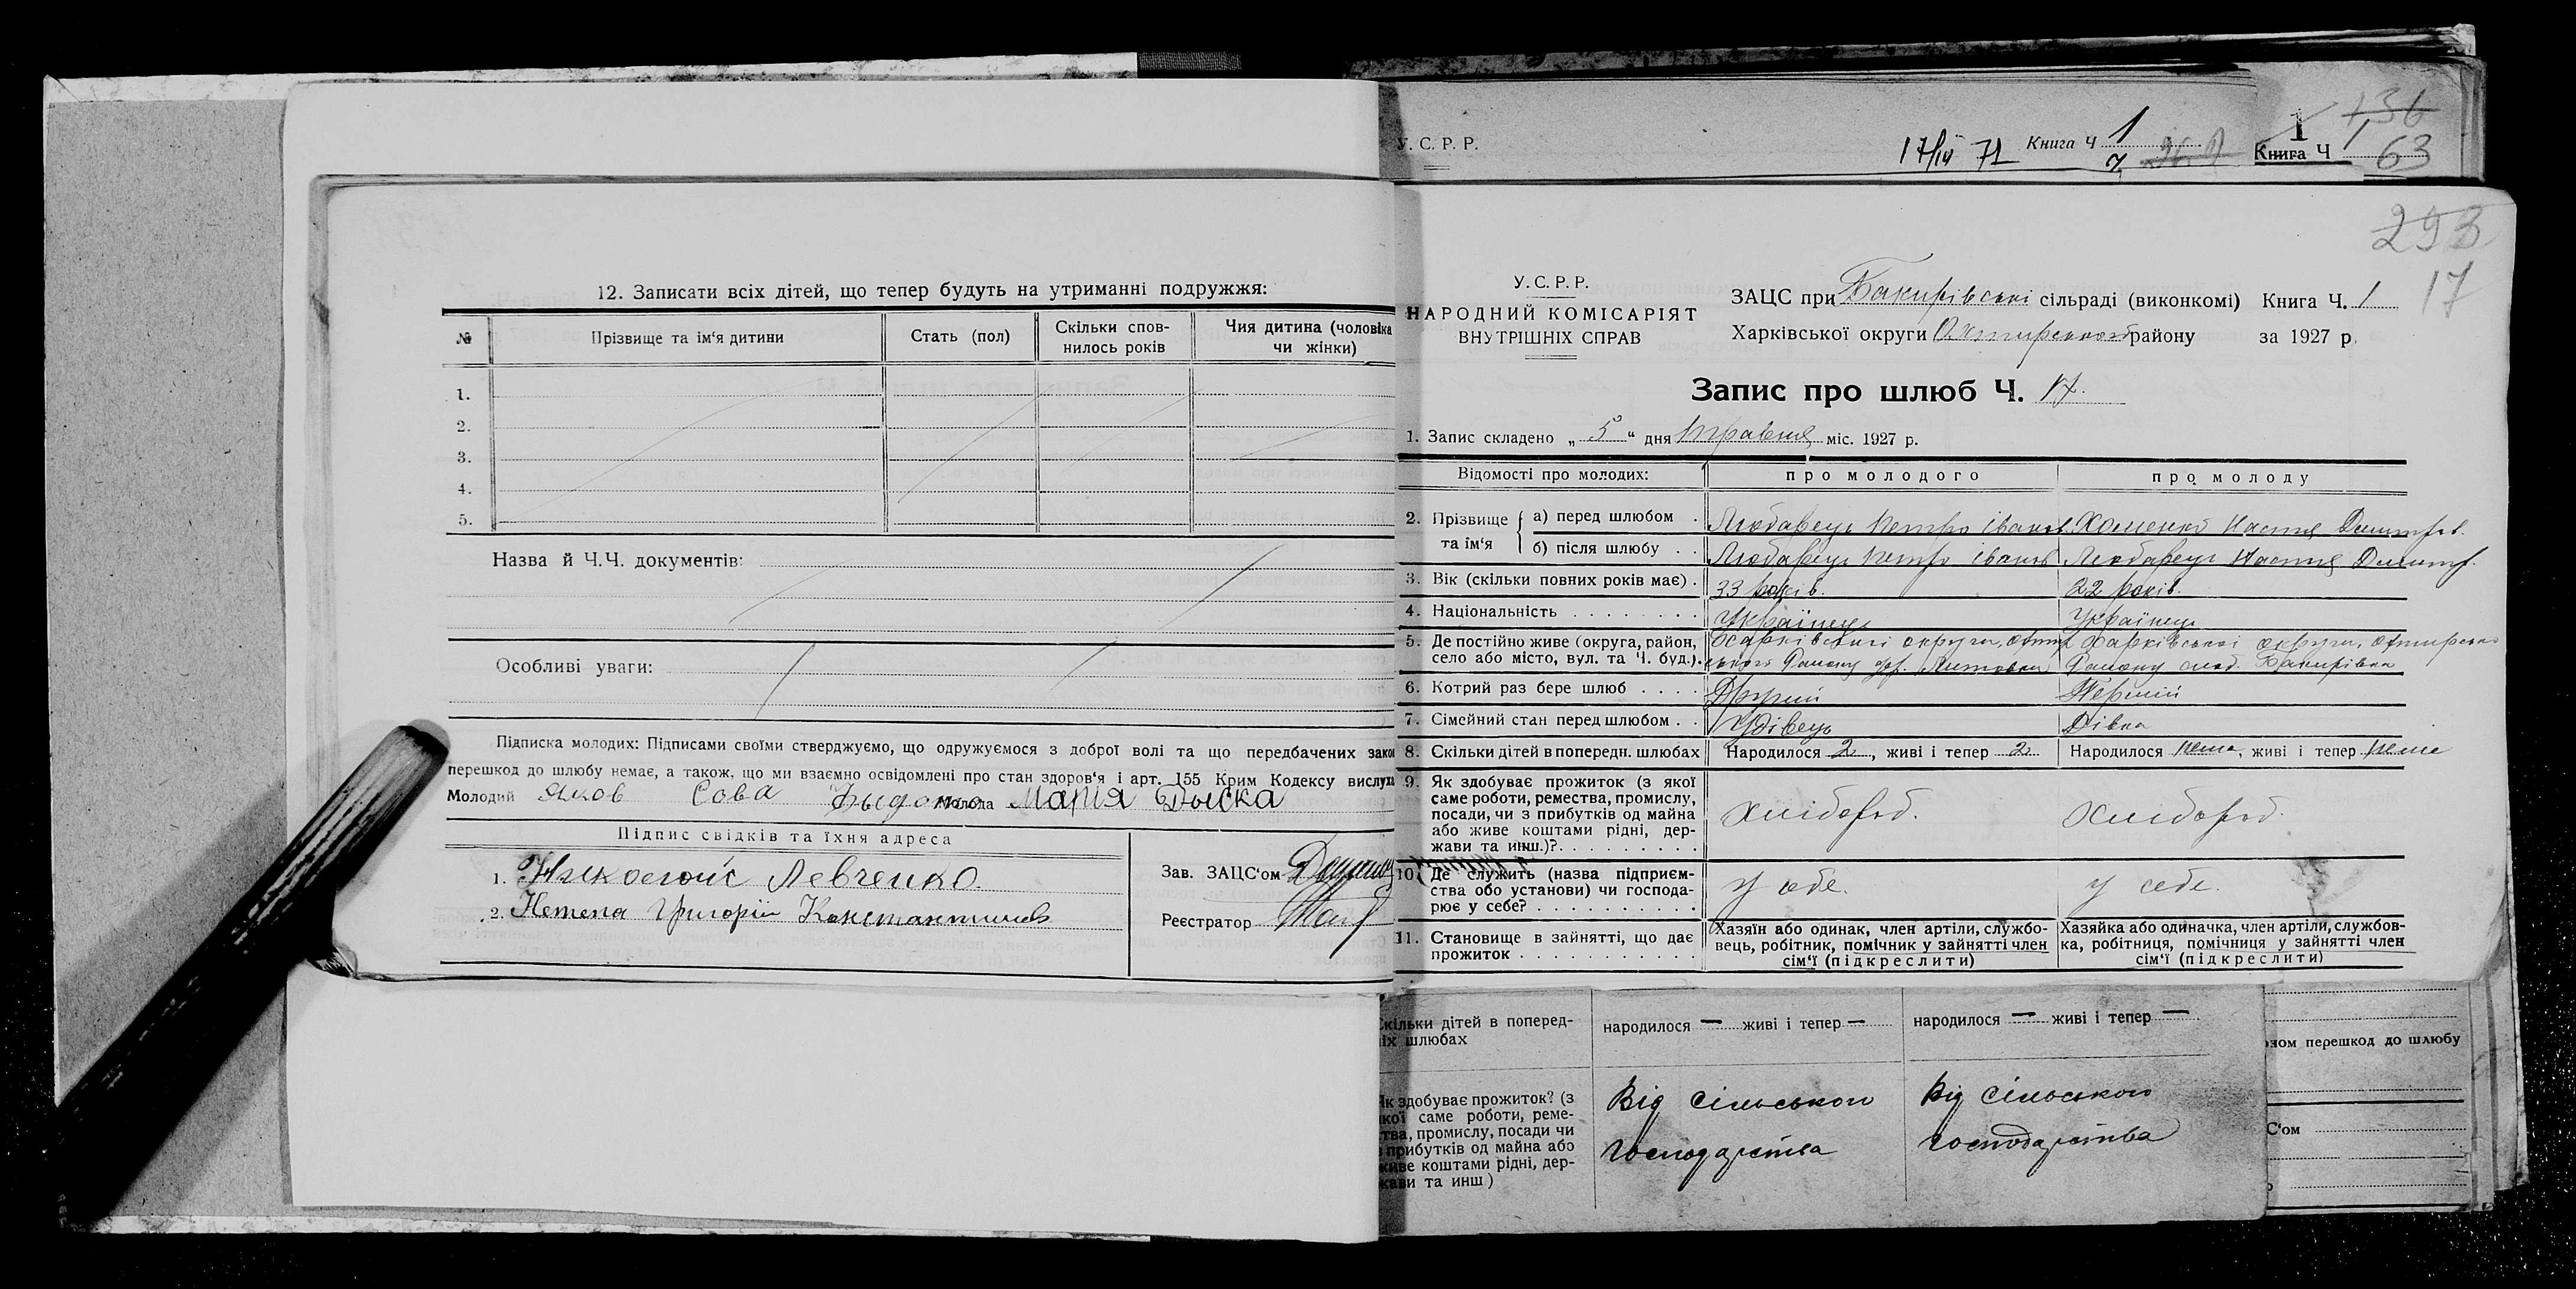 12. Записати всіх дітей, що тепер будуть на утриманні подружжя:
№ Прізвище та ім'я дитини Стать (пол) Скільки спов-нилось років Чия дитина (чоловіка чи жінки)
1.
2.
3.
4.
5.
Назва й Ч.Ч. документів:
Особливі уваги:
Підписка молодих: Підписами своїми стверджуємо, що одружуємося з доброї волі та що передбачених зако
перешкод до шлюбу немає, а також, що ми взаємно освідомлені про стан здоров'я і арт. 155 Крим Кодексу вислух
Молодий Яков Сова Молода Марія
Підпис свідків та їхня адреса
1. Николай Левченко
2. Григорій Константинов
Зав. ЗАЦС'ом
Реєстратор
У. С. Р. Р.
17/IV 71 Книга Ч 1
1 136
Книга Ч 63
293
17
У. С. Р. Р.
НАРОДНИЙ КОМІСАРІЯТ
ВНУТРІШНІХ СПРАВ
ЗАЦС при Бакирівські сільраді (виконкомі) Книга Ч. 1
Харківської округи Охтирського району за 1927 р.
Запис про шлюб Ч. 17.
1. Запис складено „ 5 " дня травня міс. 1927 р.
Відомості про молодих: про молодого про молоду
2. Прізвище та ім'я
а) перед шлюбом Любарець Петро Іванов Хоменко Настя Дмитров.
б) після шлюбу Любарець Петро Іванов Любарець Настя Дмитр.
3. Вік (скільки повних років має) 33 років. 22 років.
4. Національність Українець Українець
5. Де постійно живе (округа, район, Харківської округи, Охтир Харківської округи, Охтирсько
село або місто, вул. та Ч. буд.) ського Району Району слоб. Бакирівка
6. Котрий раз бере шлюб Другий Первий
7. Сімейний стан перед шлюбом Удівець Дівка
8. Скільки дітей в попередн. шлюбах Народилося 2, живі і тепер 2 Народилося нема, живі і тепер нема
9. Як здобуває прожиток (з якої
саме роботи, ремества, промислу,
посади, чи з прибутків од майна
або живе коштами рідні, дер-
жави та инш.)?
Хлібороб. Хлібороб.
10. Де служить (назва підприєм-
ства або установи) чи господа-
рює у себе?
У себе. У себе.
11. Становище в зайнятті, що дає
прожиток
Хазяїн або одинак, член артіли, службо-
вець, робітник, помічник у зайнятті член
сім'ї (підкреслити)
Хазяйка або одиначка, член артіли, службов-
ка, робітниця, помічниця у зайнятті член
сім'ї (підкреслити)
Скільки дітей в поперед-
ніх шлюбах
народилося — живі і тепер —
народилося — живі і тепер —
Як здобуває прожиток? (з
якої саме роботи, реме-
ства, промислу, посади чи
з прибутків од майна або
живе коштами рідні, дер-
жави та инш)
Від сільського
господарства
Від сільського
господарства
ном перешкод до шлюбу
С'ом